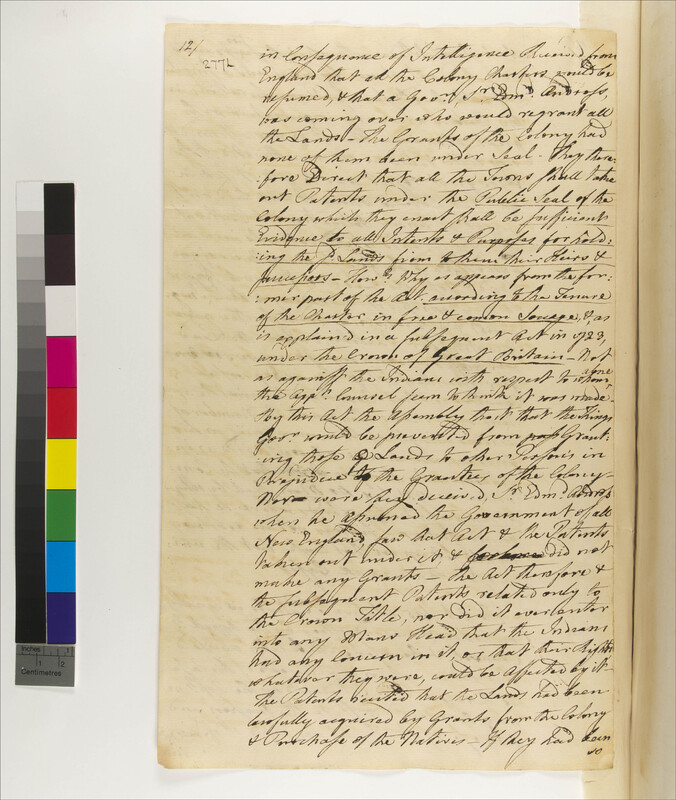 12/
277½
in Consequence of Intelligence Received from
England that all the Colony Charters would be
resumed, & that a Govr. Sr. Edmd. Andross,
was coming over who would regrant all
the Lands – The Grants of the Colony had
none of them been under Seal – They there:
:fore Direct that all the Towns shall take
out Patents under the Public Seal of the
Colony which they enact shall be sufficient
Evidence to all Intents & Purposes for hold:
:ing the sd. Lands firm to them their Heirs &
successors – How? Why as appears from the for:
:mer part of the Act according to the Tenure
of the Charter in free & comon Soccage, &, as
is explained in a subsequent Act in 1723,
under the Crown of Great Britain – Not
as against the Indians with respect to whom alone
the Appts. Counsel seem to think it was made –
By this Act the Assembly that that the Kings
Govr. would be prevented from Grant:
:ing those Lands to other Persons in
Prejudice to the Grantees of the Colony –
Nor were they deceived, Sr. Edmd. Andross
when he assumed the Government of all
New England saw that Act & the Patents
taken out under it, & did not
make any Grants – The Act therefore &
the subsequent Patents related only to
the Crown Title, nor did it ever enter
into any Mans Head that the Indians
had any Concern in it, or that their Rights
whatever they were, could be affected by it –
The Patents recited that the Lands had been
lawfully acquired by Grants from the Colony
& Purchase of the Natives – If they had been
so
Inches 1 2
Centimetres